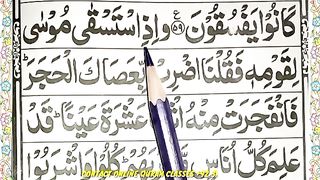 كَانُوْا يَفْسُقُوْنَ ع ﴿۵۹﴾ وَاِذِ اسْتَسْقٰى مُوْسٰى
لِقَوْمِهٖ فَقُلْنَا اضْرِبْ بِّعَصَاكَ الْحَجَرَ ؕ
فَانْفَجَرَتْ مِنْهُ اثْنَتَا عَشْرَةَ عَيْنًا ؕ قَدْ
عَلِمَ كُلُّ اُنَاسٍ كُلُوْا وَاشْرَبُوْا
CONTACT ONLINE QURAN CLASSES +92 3